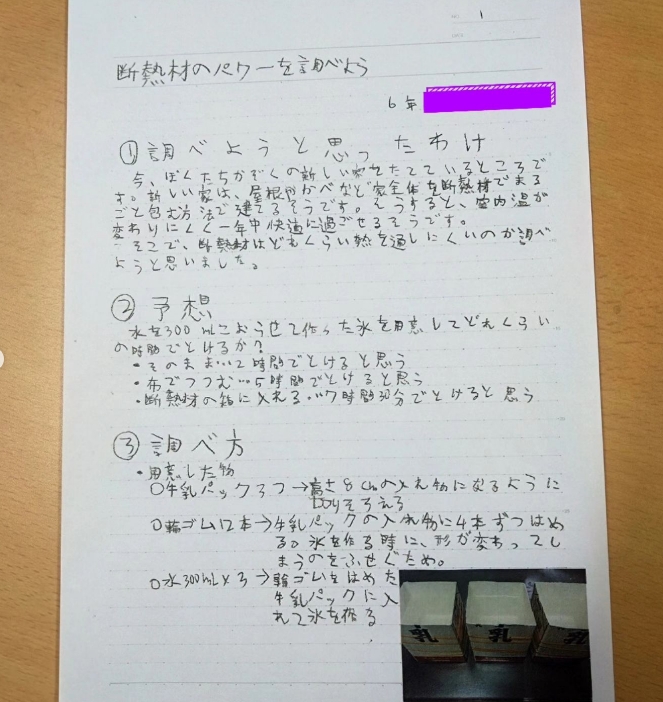 1
断熱材のパワーを調べよう
6年
①調べようと思ったわけ
今、ぼくたちかぞくの新しい家をたてているところで
す。新しい家は、屋根やかべなど家全体を断熱材でまる
ごと包む方法で建てるそうです。そうすると、室内温が
変わりにくく一年中快適に過ごせるそうです。
そこで、断熱材はどれくらい熱を通しにくいのか調べ
ようと思いました。
②予想
水を300mLこおらせて作った氷を用意してどれくらい
の時間でとけるか?
・そのまま…2時間でとけると思う
・布でつつむ…5時間でとけると思う
・断熱材の箱に入れる…7時間30分でとけると思う
③調べ方
・用意した物
○牛乳パック3つ→高さ8cmの入れ物になるように
切りそろえる
○輪ゴム12本→牛乳パックの入れ物に4本ずつはめ
る。氷を作る時に、形が変わってし
まうのをふせぐため。
○水300mL×3→輪ゴムをはめた
牛乳パックに入
れて氷を作る
乳
乳
乳